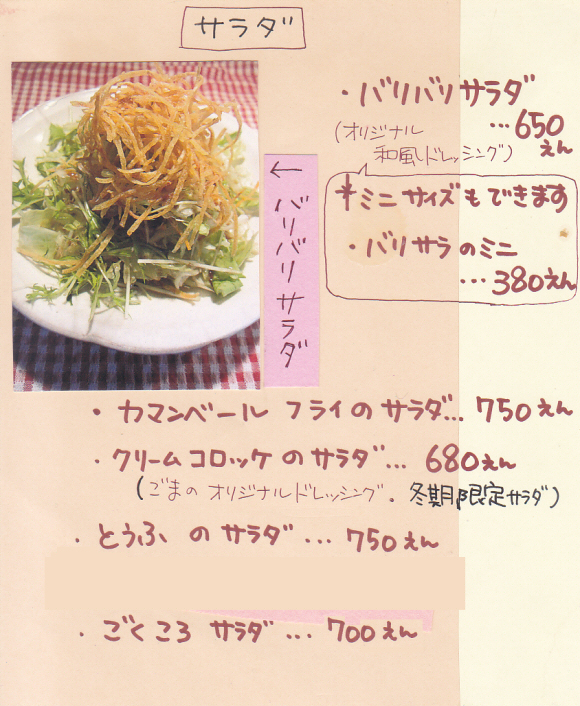 サラダ
・バリバリサラダ
…650えん
(オリジナル
和風ドレッシング)
←バリバリサラダ
ミニサイズもできます
・バリサラのミニ
…380えん
・カマンベール フライのサラダ…750えん
・クリームコロッケのサラダ…680えん
(ごまのオリジナルドレッシング. 冬期限定サラダ)
・とうふのサラダ…750えん
・ごくころ サラダ…700えん